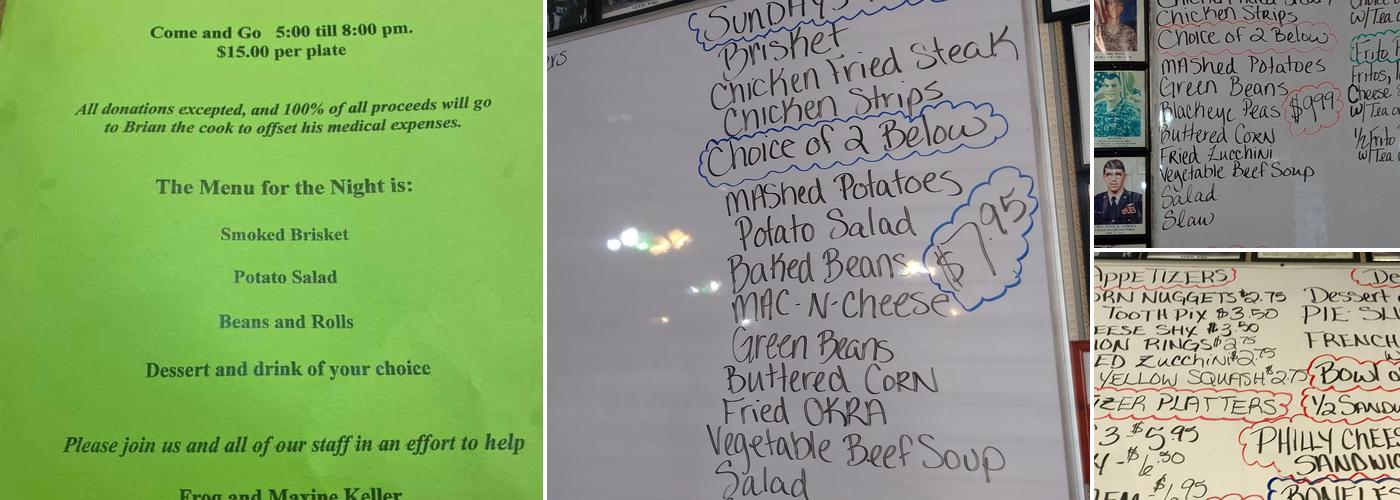 Come and Go 5:00 till 8:00 pm.
$15.00 per plate
All donations excepted, and 100% of all proceeds will go
to Brian the cook to offset his medical expenses.
The Menu for the Night is:
Smoked Brisket
Potato Salad
Beans and Rolls
Dessert and drink of your choice
Please join us and all of our staff in an effort to help
Frog and Maxine Keller
SUNDAYS
Brisket
Chicken Fried Steak
Chicken Strips
Choice of 2 Below
MAShed Potatoes
Potato Salad
Baked Beans
$7.95
MAC-N-Cheese
Green Beans
Buttered CORN
Fried OKRA
Vegetable Beef Soup
Salad
Chicken Strips
Choice of 2 Below
MAShed Potatoes
Green Beans
Blackeye Peas $9.99
Buttered CORN
Fried Zucchini
Vegetable Beef Soup
Salad
Slaw
w/Tea
Frito
Fritos,
Cheese
w/Tea
1/2 Frito
w/Tea
APPETIZERS
ORN NUGGETS $2.75
TOOTH PIX $3.50
EESE STIX $3.50
ION RINGS $2.75
ED ZUCCHINI $2.75
YELLOW SQUASH $2.75
IZER PLATTERS
3 $5.95
4 - $6.50
$1.95
De
Dessert
PIE SLI
FRENCH
Bowl o
1/2 SANDW
PHILLY CHEES
SANDWIC
BONELES